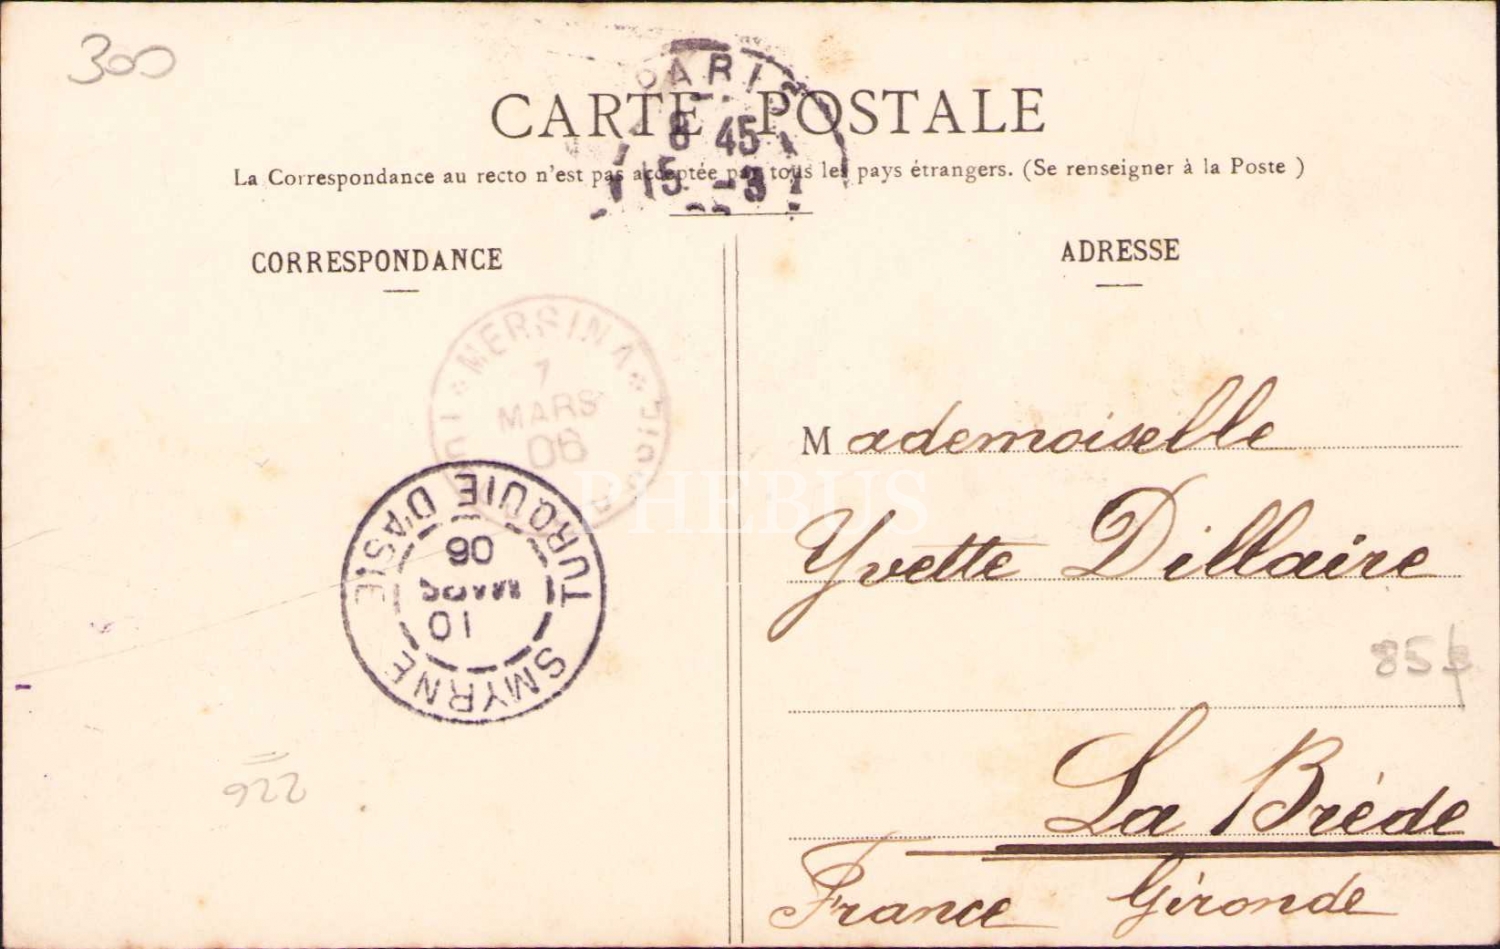 300
PARIS
8 45
15 -3
CARTE POSTALE
La Correspondance au recto n'est pas acceptée par tous les pays étrangers. (Se renseigner à la Poste )
CORRESPONDANCE
ADRESSE
MERSINA
7
MARS
06
PHEBUS
TURQUIE D'ASIE
06
MARS
10
SMYRNE
922
Mademoiselle
Yvette Dillaire
85
La Brède
France Gironde